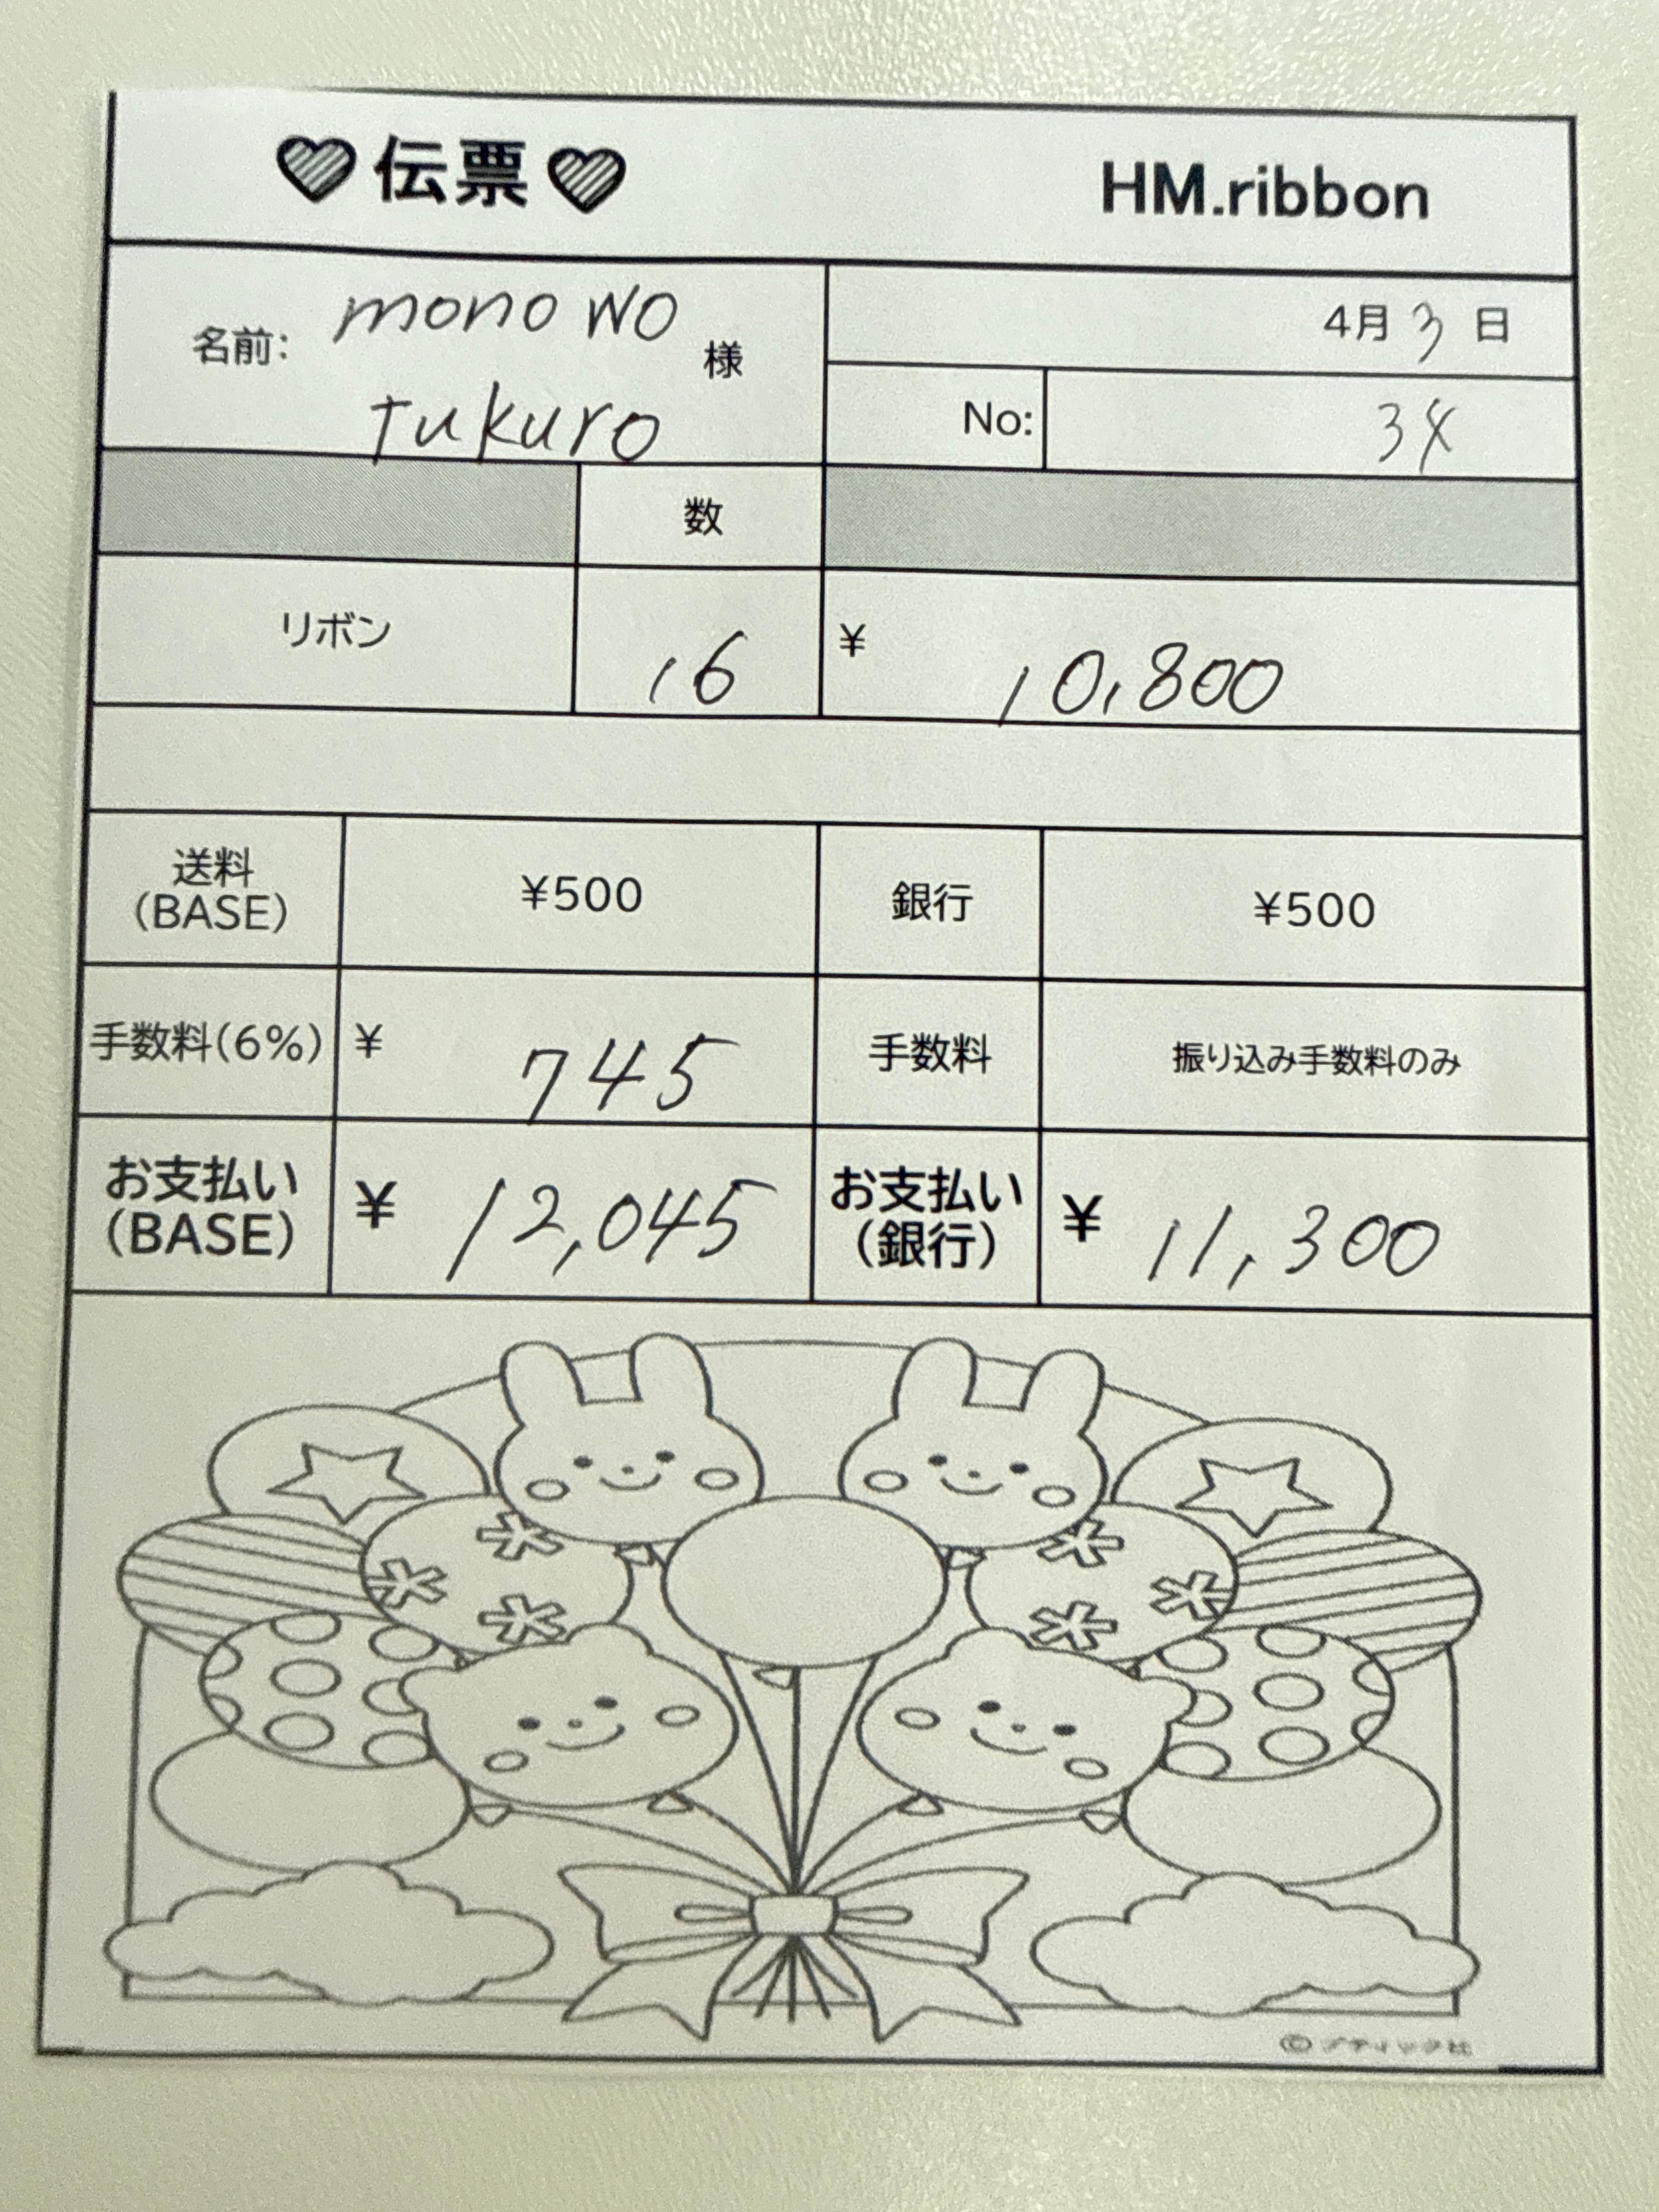 伝票 HM.ribbon
名前: mono wo 様
tukuro
4月 3 日
No: 38
数
リボン 16 ¥ 10,800
送料 (BASE) ¥500 銀行 ¥500
手数料(6%) ¥ 745 手数料 振り込み手数料のみ
お支払い (BASE) ¥ 12,045 お支払い (銀行) ¥ 11,300
©ブティック社